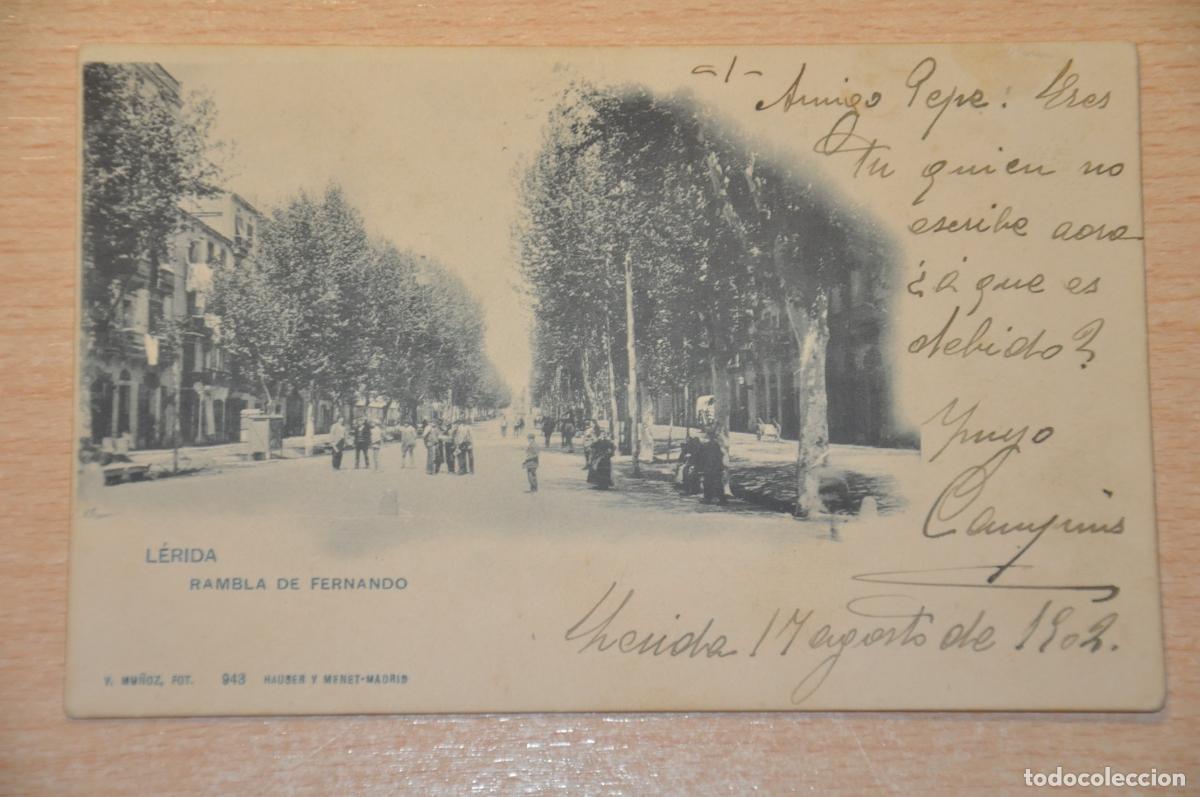 -1-
Amigo Pepe: Eres
Tu quien no
escribe aora
¿á que es
debido?
Tuyo
Camprins
LÉRIDA
RAMBLA DE FERNANDO
Lerida 17 agosto de 1902.
V. MUÑOZ, FOT. 943 HAUSER Y MENET-MADRID
todocoleccion